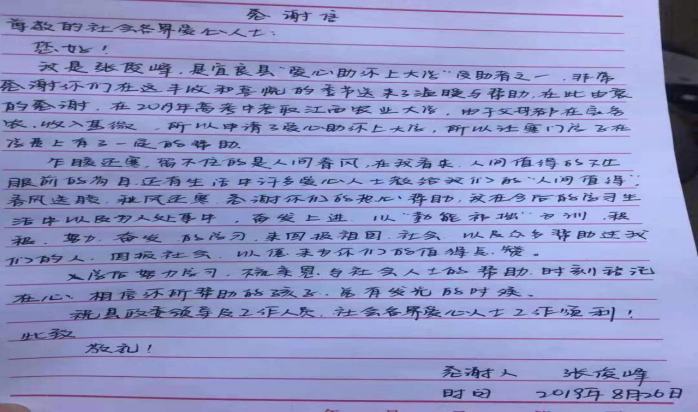 感谢信
尊敬的社会各界爱心人士:
您好!
我是张俊峰,是宜良县“爱心助你上大学”受助者之一,非常
感谢你们在这丰收和喜悦的季节送来了温暖与帮助,在此由衷
的感谢,在2019年高考中考取江西农业大学,由于父母都在家务
农,收入甚微,所以申请了爱心助你上大学,所以让寒门学子在
学费上有了一定的帮助.
乍暖还寒,留不住的是人间春风,在我看来,人间值得的不止
眼前的岁月,还有生活中许多爱心人士教给我们的“人间值得”,
春风送暖,秋风还寒,感谢你们的热心帮助,我在今后的学习生
活中以及为人处事中,奋发上进,以“勤能补拙”为训,积
极,努力,奋发的学习,来回报祖国,社会,以及众多帮助过我
们的人,回报社会,以德来为你们的值得点赞。
大学后努力学习,不辜负与社会人士的帮助,时刻铭记
在心,相信你所帮助的孩子,总有发光的时候。
祝县政委领导及工作人员,社会各界爱心人士工作顺利!
此致
敬礼!
感谢人 张俊峰
时间 2019年8月26日